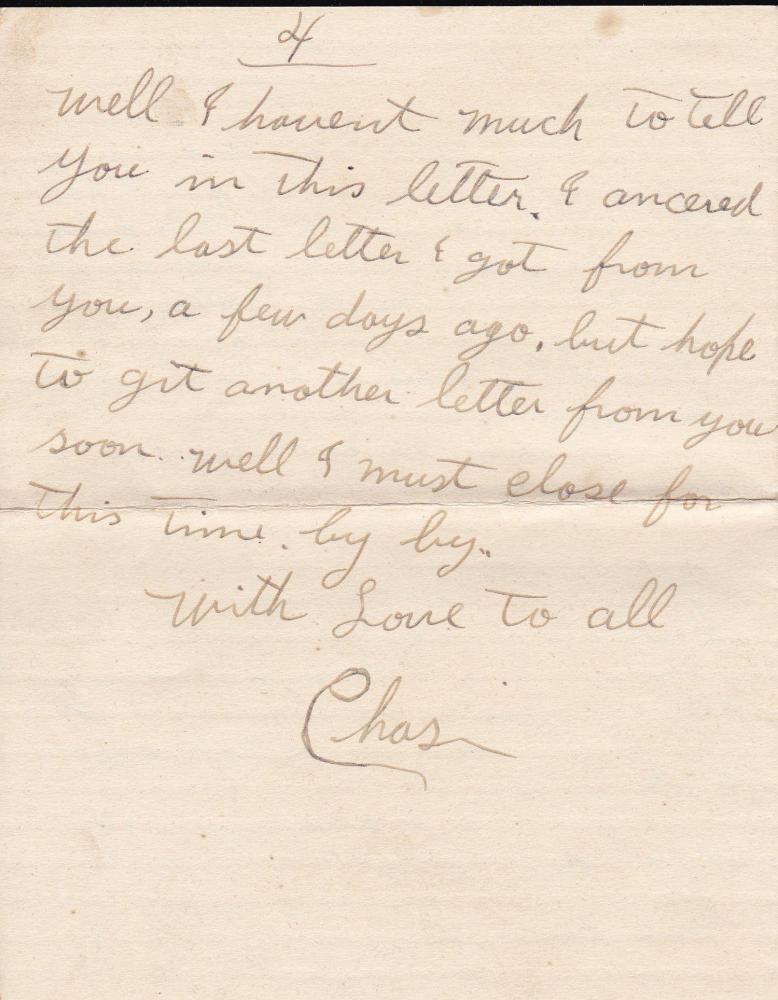 4
Well I havent much to tell
you in this letter. I ancered
the last letter I got from
you, a few days ago, but hope
to git another letter from you
soon. well I must close for
this time. by by.
With Love to all
Chas